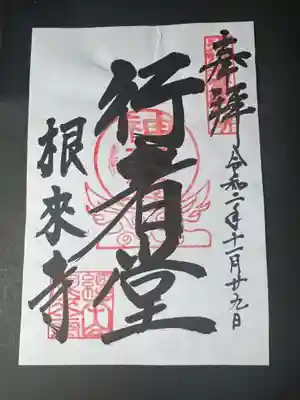 奉拝
令和二年十一月廿九日
行者堂
根來寺